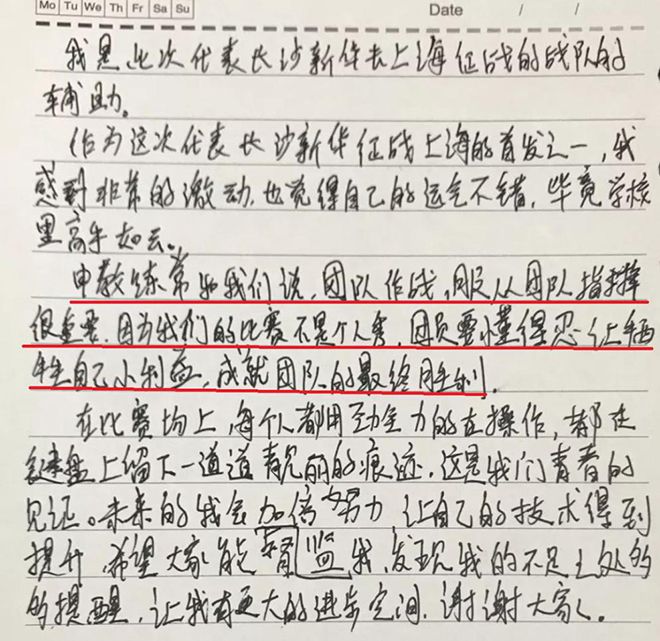 Mo Tu We Th Fr Sa Su Date / /
我是此次代表长沙新华去上海征战的战队的
辅助。
作为这次代表长沙新华征战上海的首发之一，我
感到非常的激动，也觉得自己的运气不错，毕竟学校
里高手如云。
申教练常如我们说，团队作战，服从团队指挥
很重要，因为我们的比赛不是个人秀，团员要懂得忍让牺
牲自己小利益，成就团队的最终胜利。
在比赛场上，每个人都用劲全力的在操作，都在
键盘上留下一道道靓丽的痕迹，这是我们青春的
见证。未来的我会加倍努力，让自己的技术得到
提升，希望大家能督监我，发现我的不足之处的
的提醒，让我有更大的进步空间，谢谢大家。